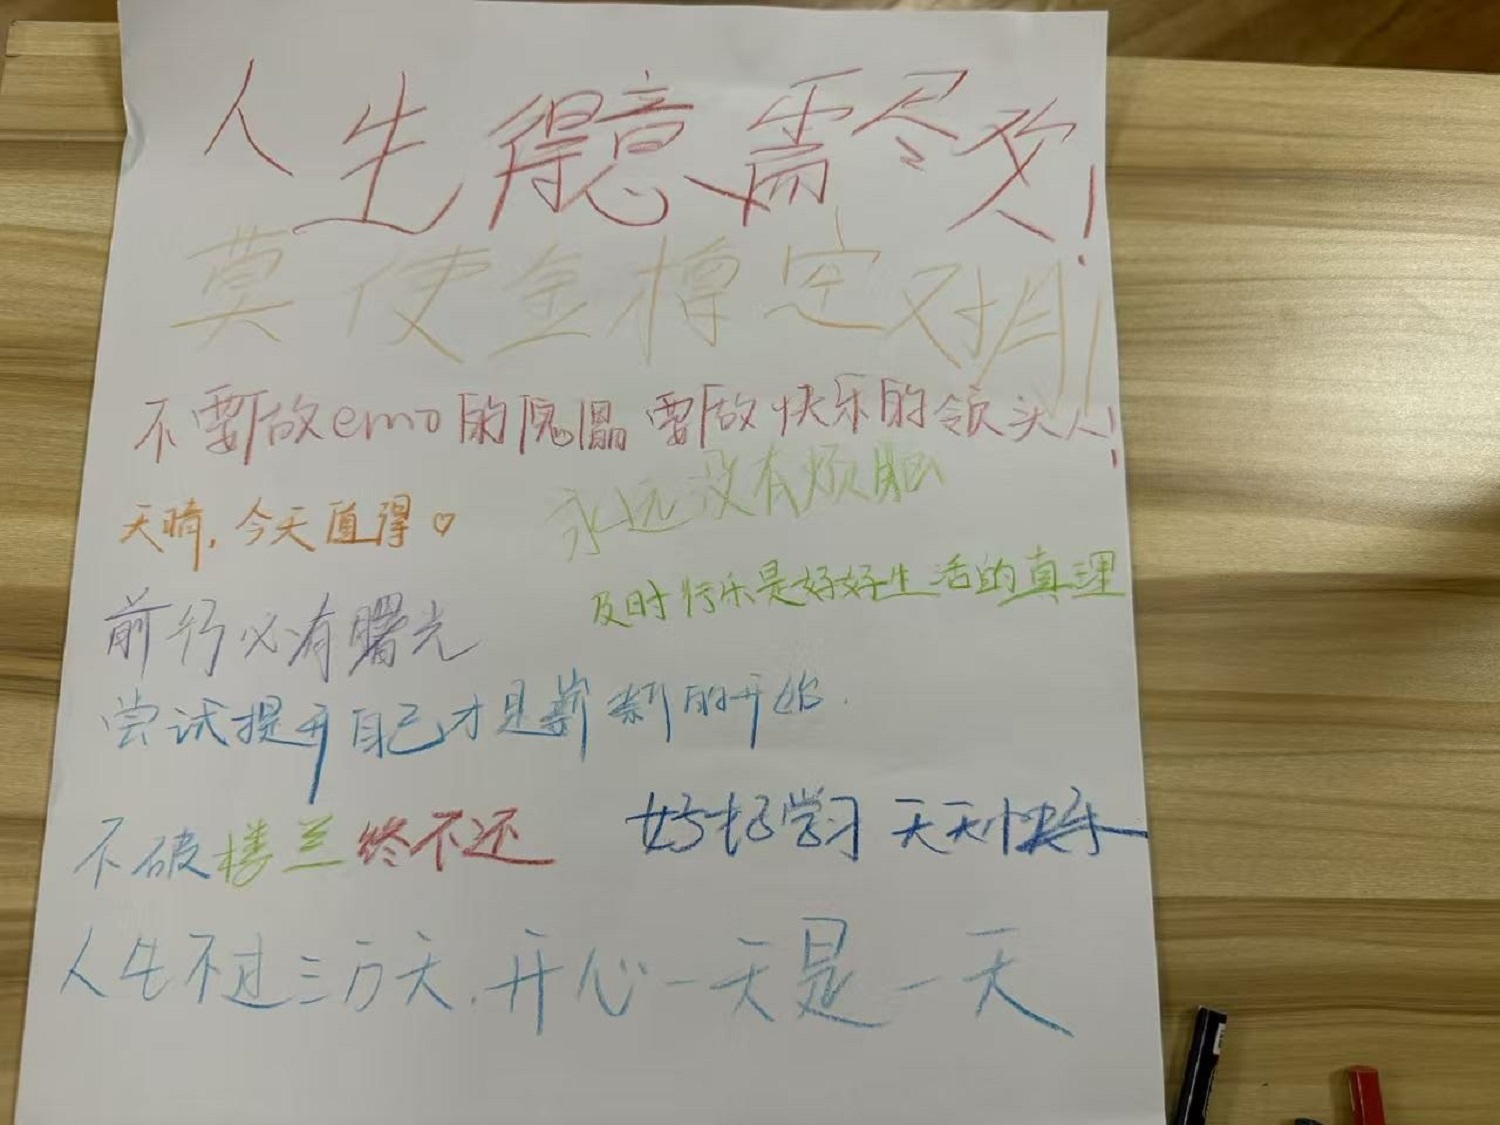 人生得意需尽欢！
莫使金樽空对月！
不要做emo的傀儡 要做快乐的领头人！
天晴，今天值得♡
永远没有烦恼
及时行乐是好好生活的真理
前行必有曙光
尝试提升自己才是崭新的开始.
不破楼兰终不还
好好学习 天天快乐
人生不过三万天，开心一天是一天